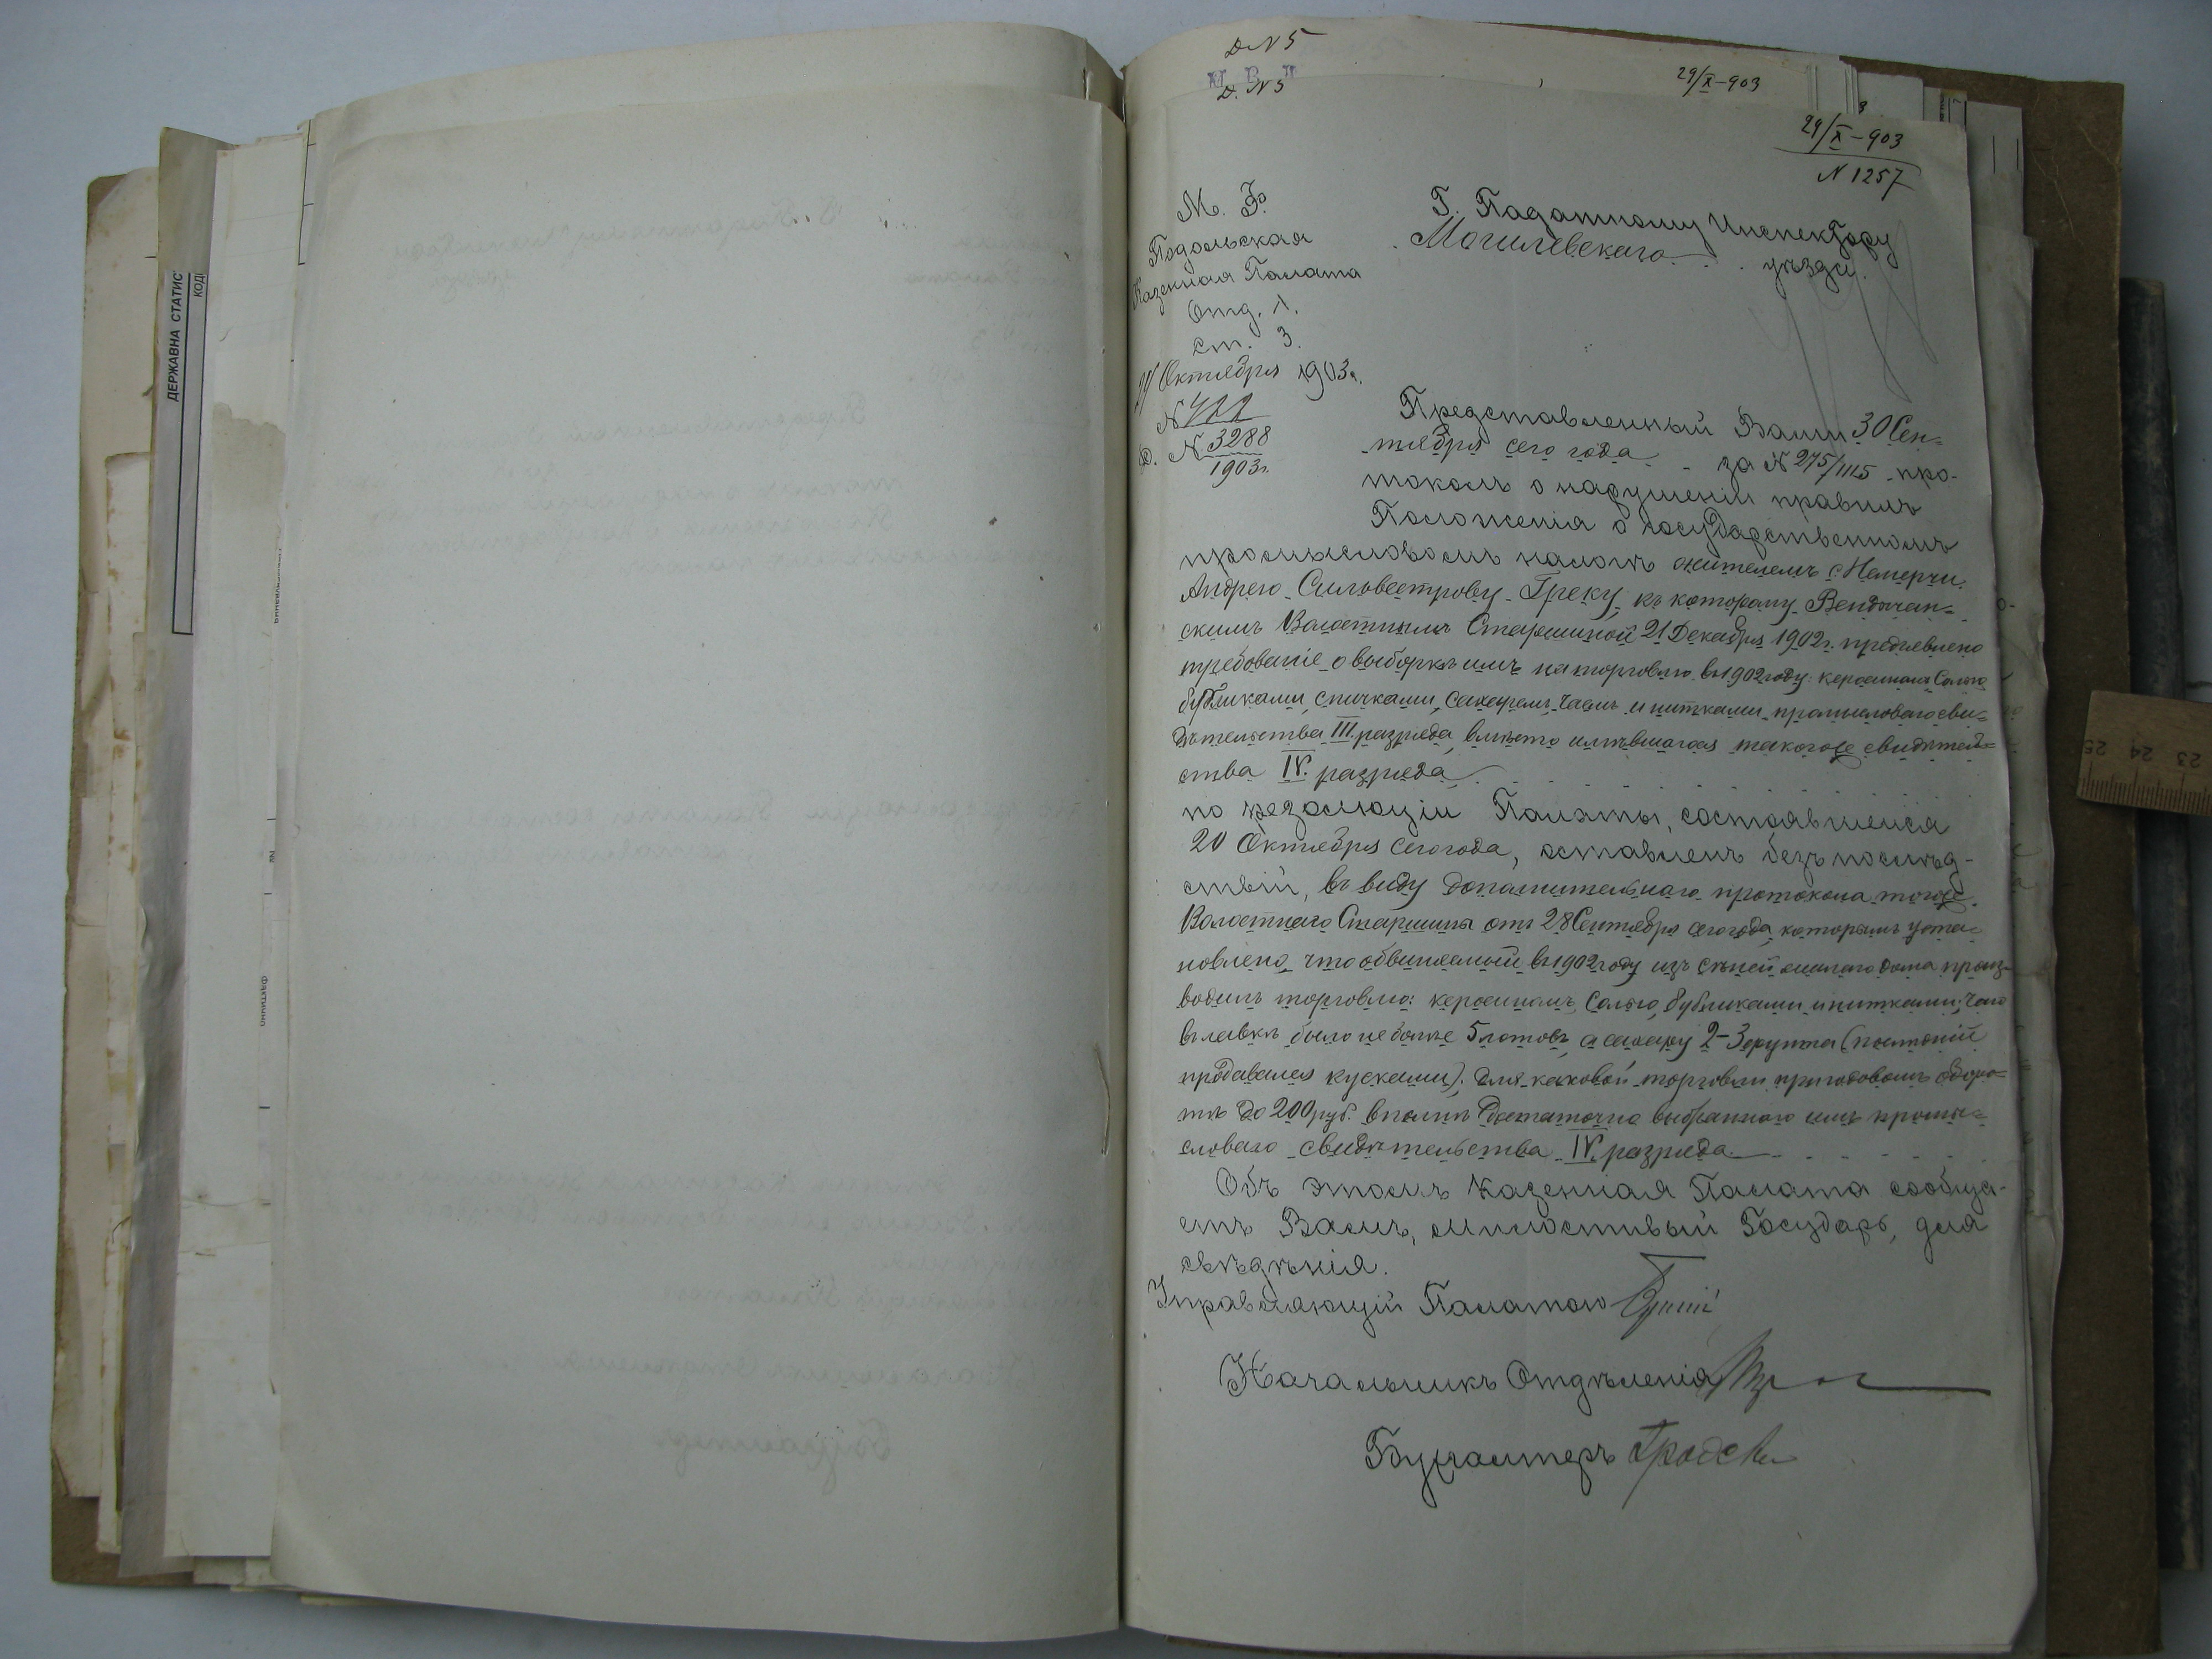 Д. N 5
29/X-903
Д. N 5
29/X-903
N 1257
М. Ф.
Подольская
Казенная Палата
Отд. 1.
Ст. 3.
Октября 1903 г.
Д. N 3288
1903 г.
Г. Податному Инспектору
Могилевскаго уѣзда.
Представленный Вами 30 Сен=
тября сего года за N 275/1115 про-
токолъ о нарушеніи правилъ
Положенія о государственномъ
промысловомъ налогѣ жителемъ с. Немерчи
Андрею Сильвестрову Греку, къ которому Вендичан=
скимъ Волостнымъ Старшиной 21 Декабря 1902 г. предъявлено
требованіе о выборкѣ имъ на торговлю въ 1902 году: керосиномъ Солью
бубликами, спичками, сахаромъ, чаемъ и нитками промысловаго сви=
дѣтельства III. разряда, вмѣсто имѣвшагося такогоже свидѣтель=
ства IV. разряда
по резолюціи Палаты, состоявшейся
20 Октября сего года, оставленъ безъ послѣд-
ствій, въ виду дополнительнаго протокола тогоже
Волостнаго Старшины отъ 28 Сентября сего года, которымъ уста=
новлено, что обвиняемый въ 1902 году изъ сѣней жилаго дома произ=
водилъ торговлю: керосиномъ, Солью, бубликами и нитками; чаю
въ лавкѣ было не более 5 лотовъ, а сахару 2-3 фунта (послѣдній
продавался кусками), для каковой торговли при годовомъ оборо=
тѣ до 200 руб. вполнѣ достаточно выбраннаго имъ промы=
словаго свидѣтельства IV. разряда.
Объ этомъ Казенная Палата сообща-
етъ Вамъ, Милостивый Государь, для
свѣдѣнія.
Управляющій Палатою
Начальникъ Отдѣленія
Бухгалтеръ
ДЕРЖАВНА СТАТИС
КОД
23 24 25